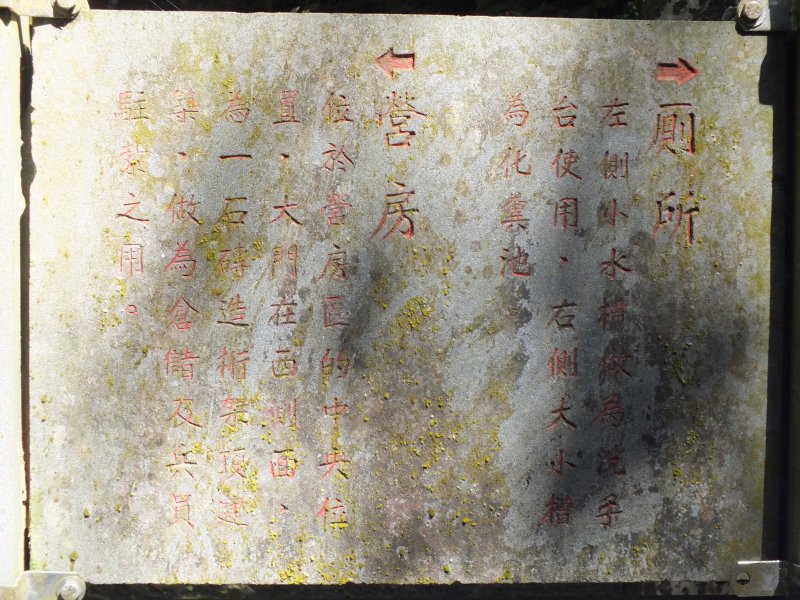 →
廁所
左側小水槽做為洗手
台使用，右側大小槽
為化糞池。
←
營房
位於營房區的中央位
置，大門在西側面，
為一石磚造桁架頂建
築，做為倉儲及兵員
駐紮之用。